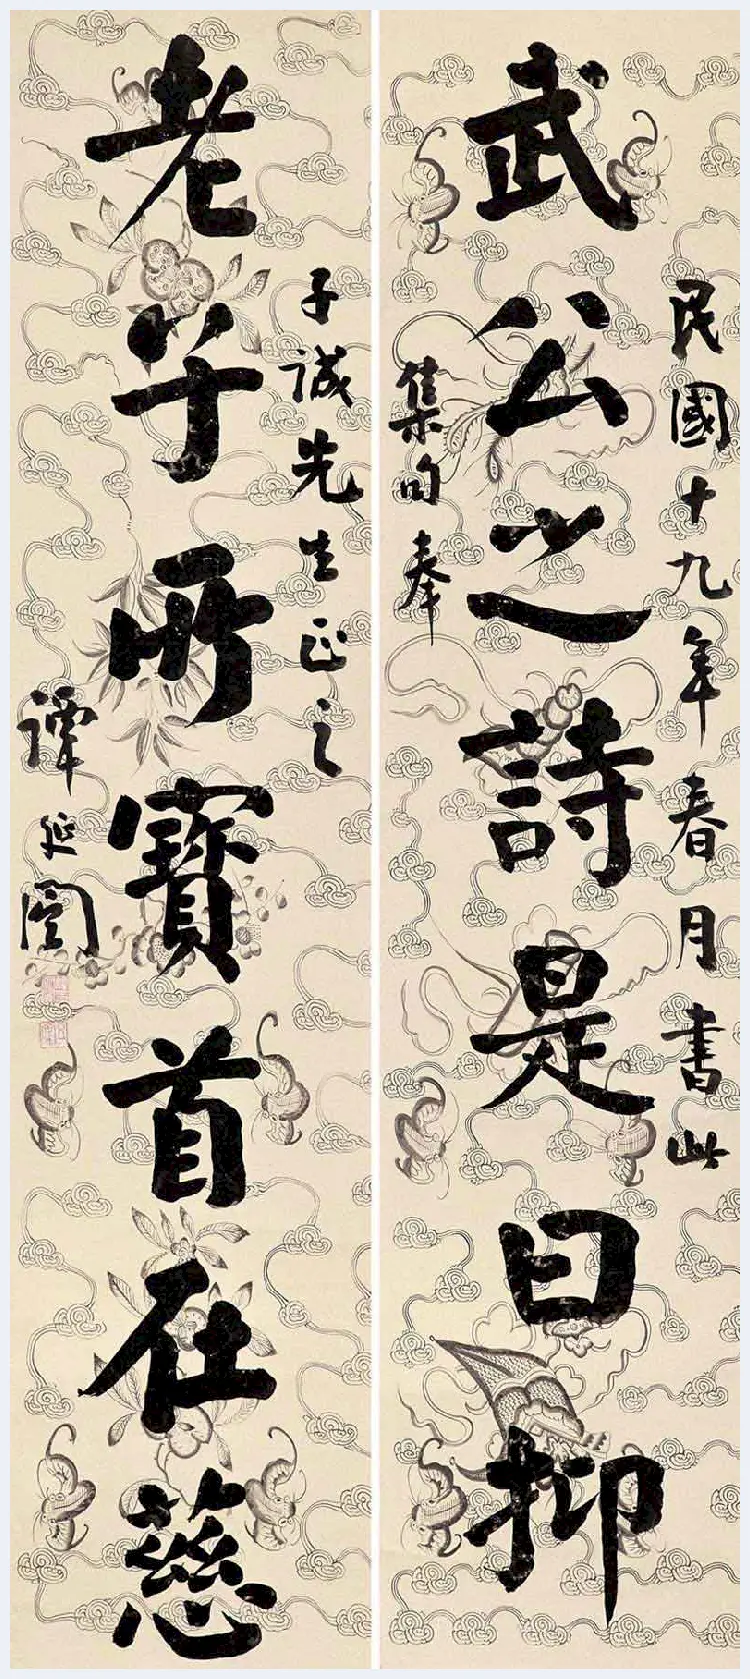 武公之詩是曰抑
民國十九年春月書此
集句奉
老子所寶首在慈
子誠先生正之
譚延闓